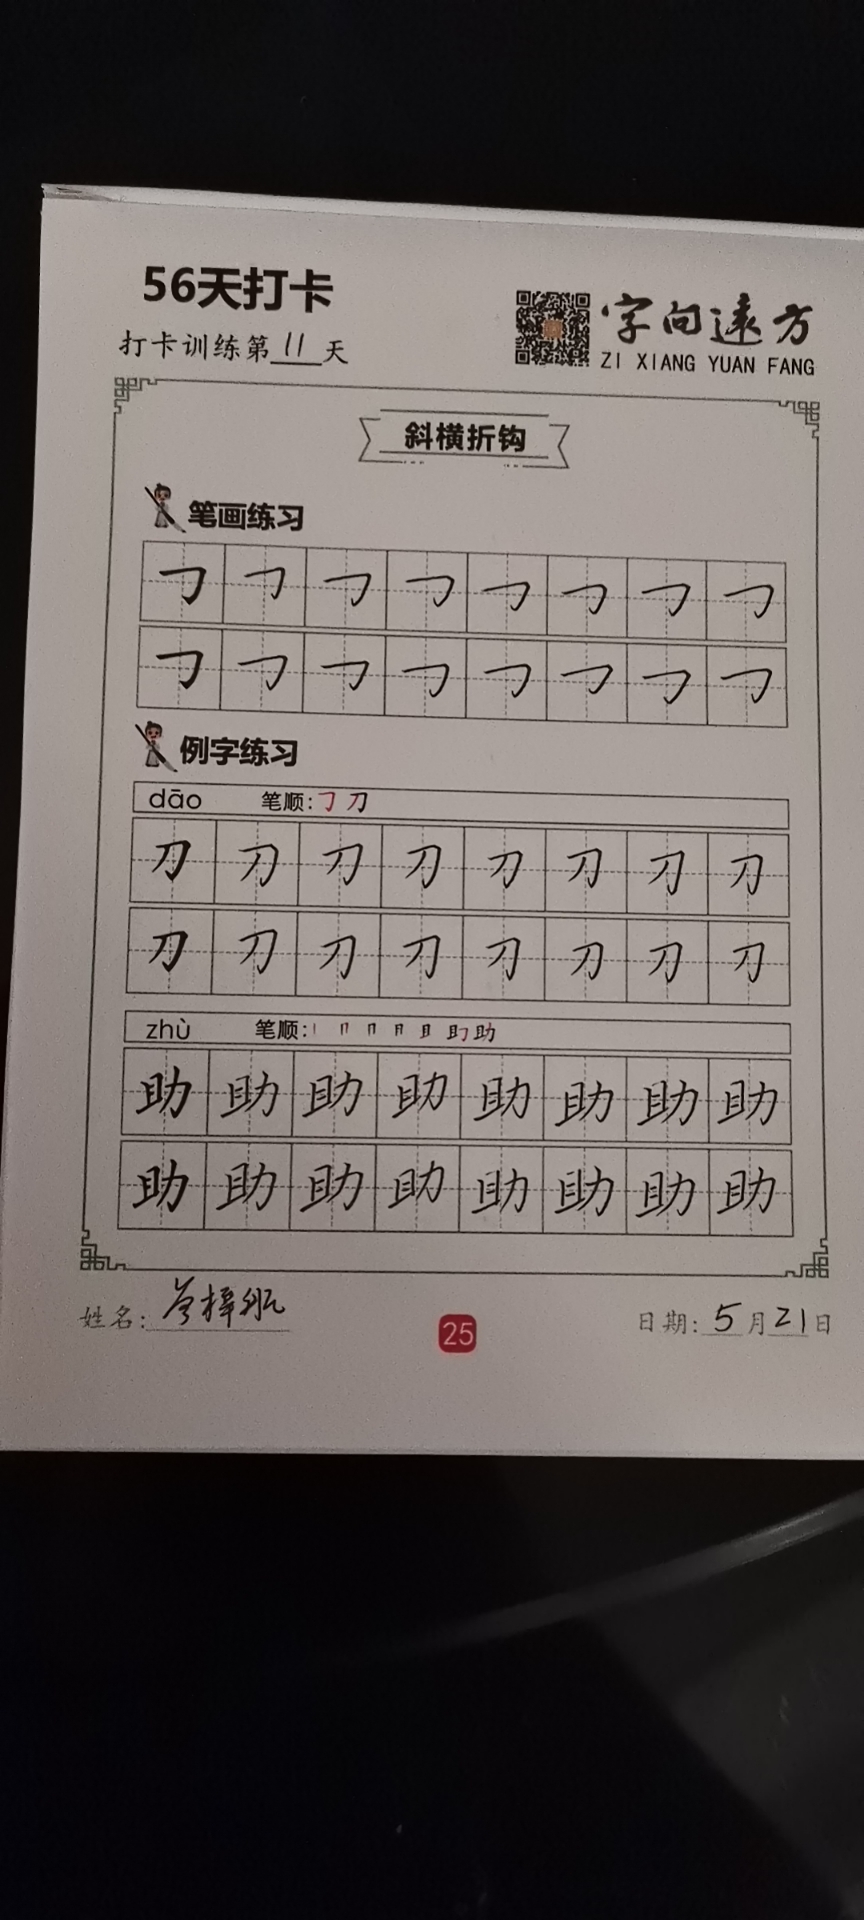 56天打卡
打卡训练第11天
字向远方
ZI XIANG YUAN FANG
斜横折钩
笔画练习
㇆ ㇆ ㇆ ㇆ ㇆ ㇆ ㇆ ㇆
㇆ ㇆ ㇆ ㇆ ㇆ ㇆ ㇆ ㇆
例字练习
dāo 笔顺:㇆ 刀
刀 刀 刀 刀 刀 刀 刀 刀
刀 刀 刀 刀 刀 刀 刀 刀
zhù 笔顺: 助
助 助 助 助 助 助 助 助
助 助 助 助 助 助 助 助
姓名:
25
日期:5月21日